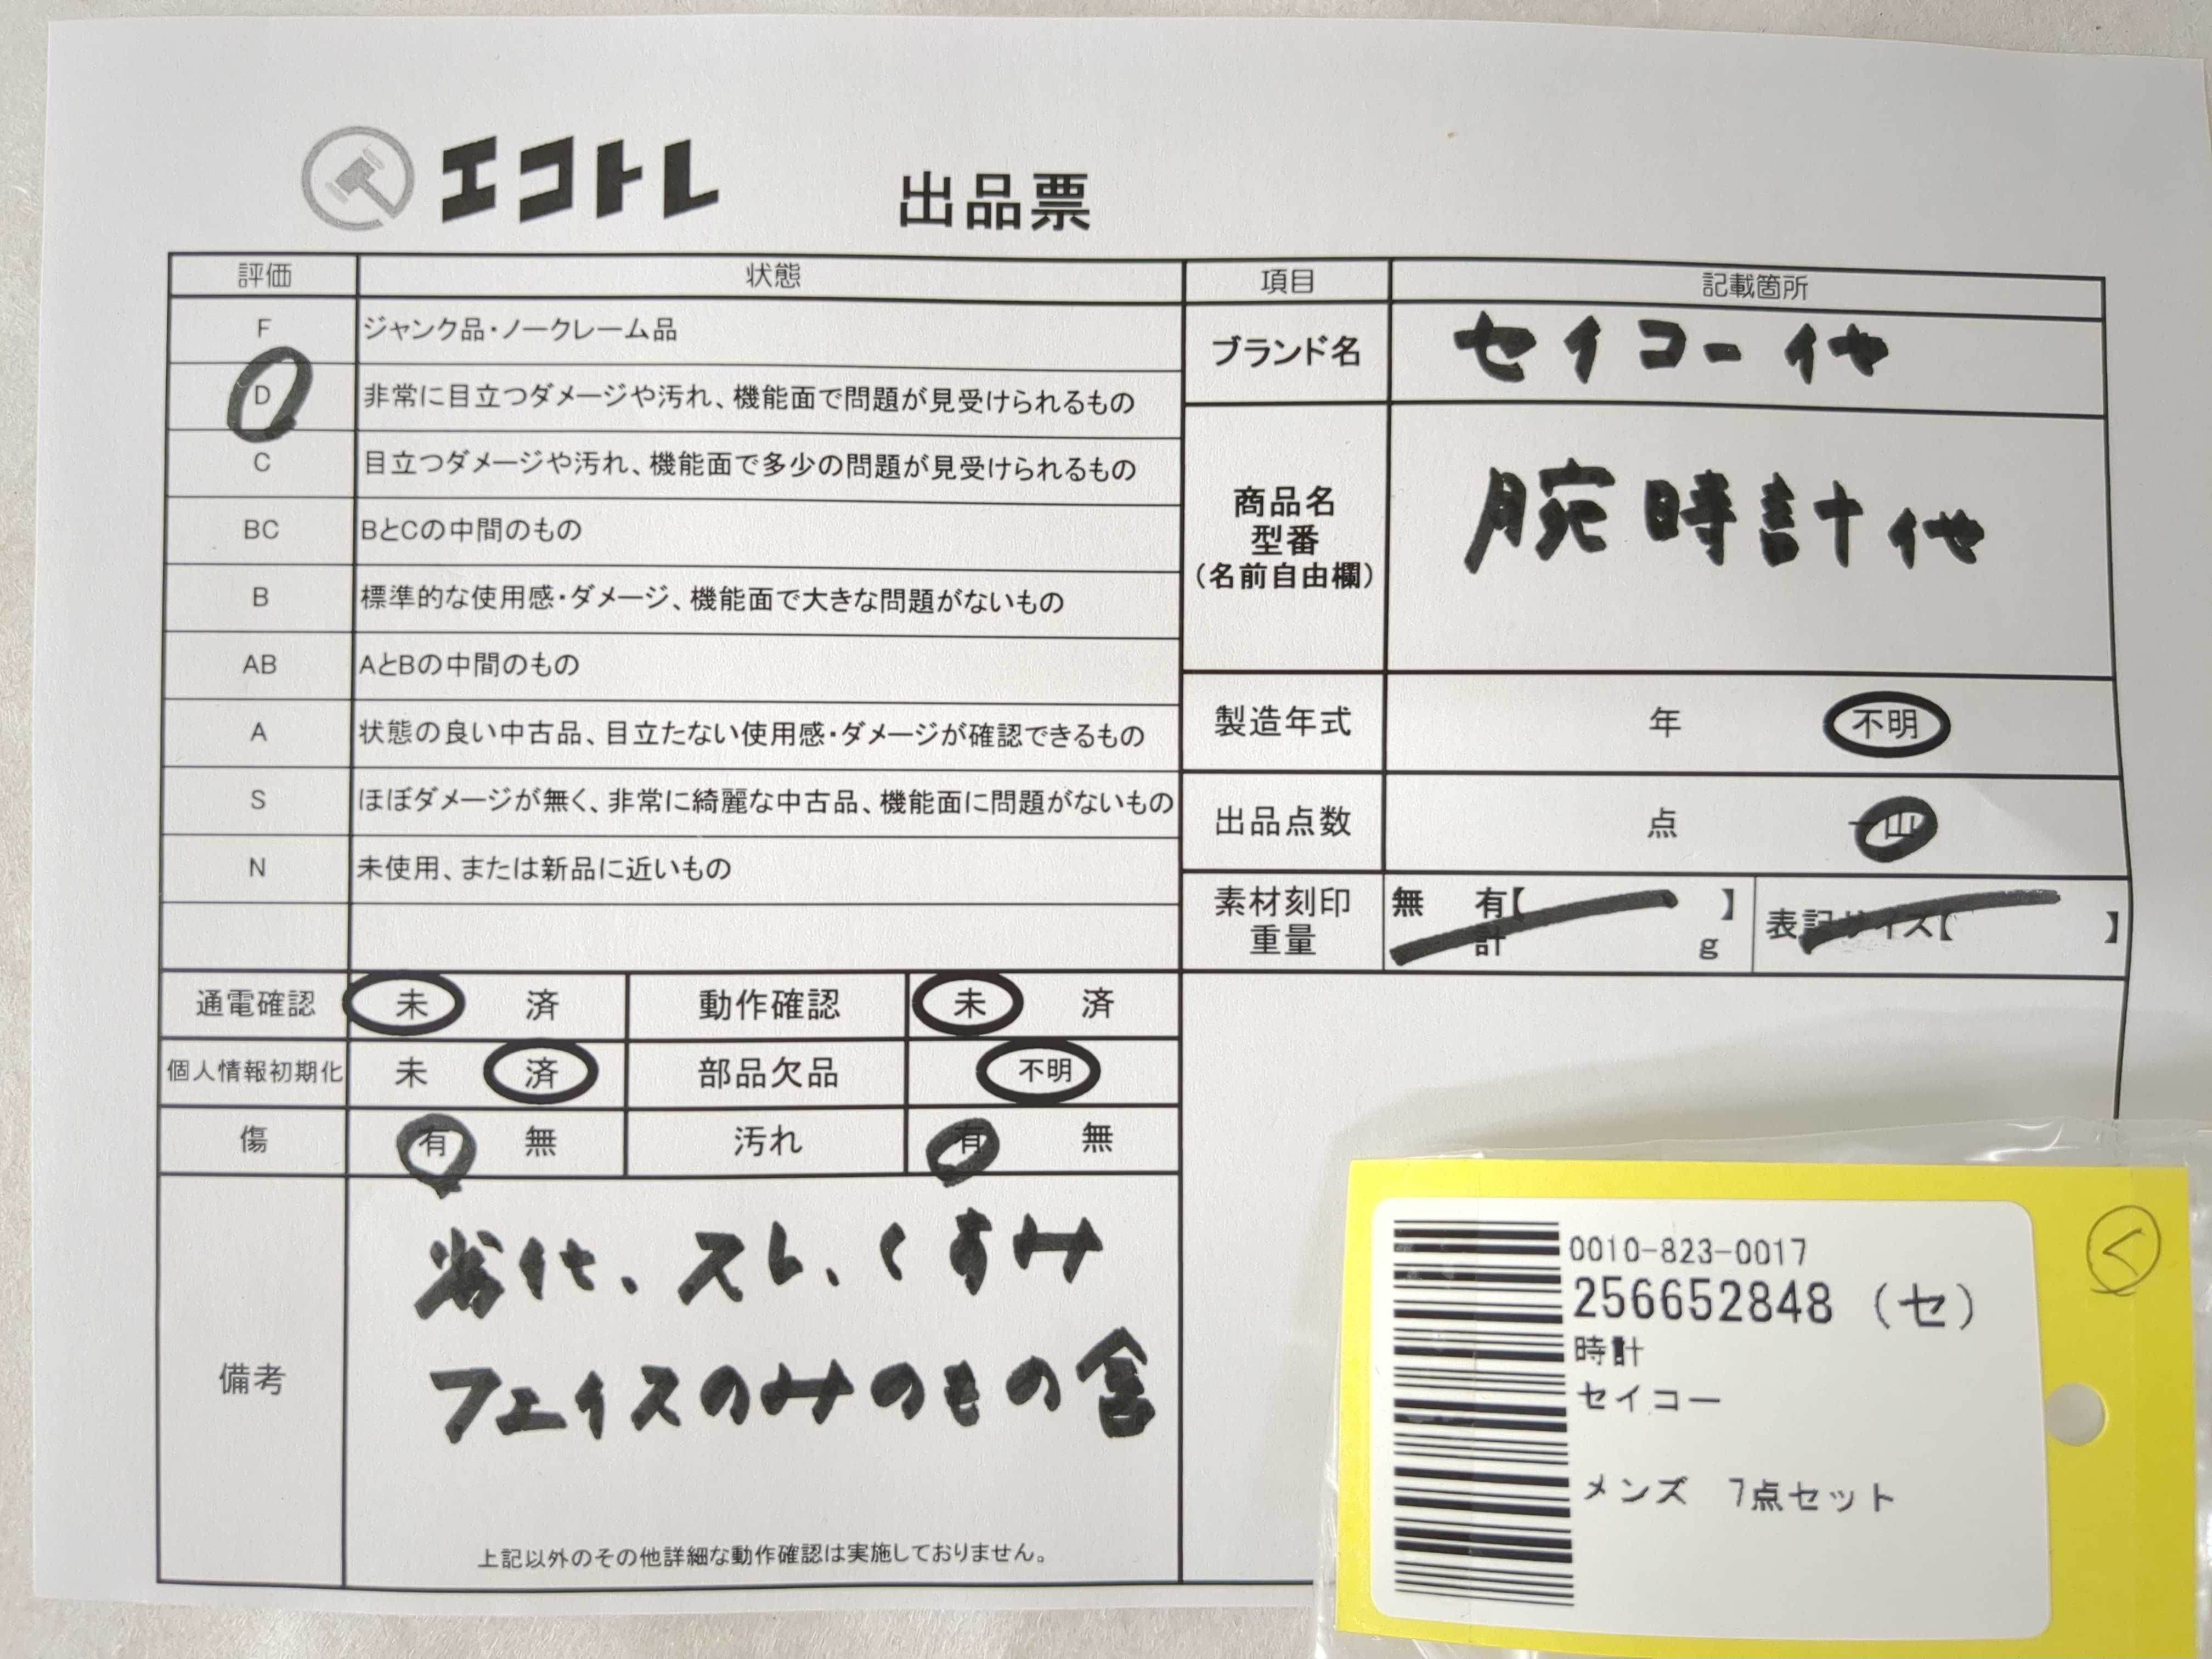 エコトレ 出品票
評価 状態
F ジャンク品・ノークレーム品
D 非常に目立つダメージや汚れ、機能面で問題が見受けられるもの
C 目立つダメージや汚れ、機能面で多少の問題が見受けられるもの
BC BとCの中間のもの
B 標準的な使用感・ダメージ、機能面で大きな問題がないもの
AB AとBの中間のもの
A 状態の良い中古品、目立たない使用感・ダメージが確認できるもの
S ほぼダメージが無く、非常に綺麗な中古品、機能面に問題がないもの
N 未使用、または新品に近いもの
項目 記載箇所
ブランド名 セイコー他
商品名
型番
（名前自由欄）
腕時計他
製造年式 年 不明
出品点数 点 一山
素材刻印
重量
無 有【 】
計 g
表記サイズ【 】
通電確認 未 済 動作確認 未 済
個人情報初期化 未 済 部品欠品 不明
傷 有 無 汚れ 有 無
備考
劣化、スレ、くすみ
フェイスのみのもの含
上記以外のその他詳細な動作確認は実施しておりません。
0010-823-0017
256652848 （セ）
時計
セイコー
メンズ 7点セット
く